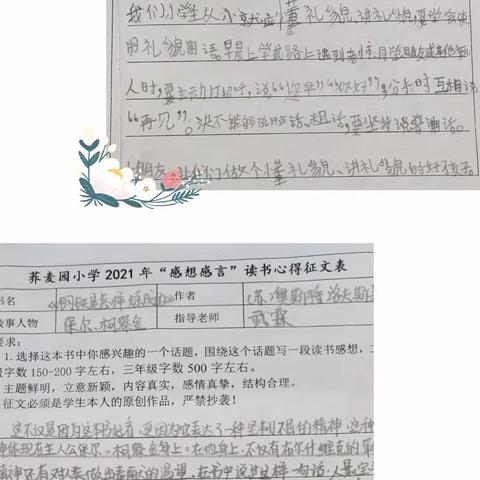 我们小学生从小就应懂礼貌、讲礼貌,要学会使
用礼貌用语。早晨上学或路上遇到老师、同学朋友或其他
人时,要主动打招呼,说“您早”“你好”,分手时互相说
“再见”。决不能够说脏话、粗话,要坚持说普通话。
小朋友,让我们做个懂礼貌、讲礼貌的好孩子
荞麦园小学2021年“感想感言”读书心得征文表
书名 《钢铁是怎样炼成的》 作者 (苏)奥斯特洛夫斯
故事人物 保尔、柯察金 指导老师 武霖
要求:
1. 选择这本书中你感兴趣的一个话题,围绕这个话题写一段读书感想,
级字数150-200字左右,三年级字数500字左右。
主题鲜明,立意新颖,内容真实,感情真挚,结构合理。
征文必须是学生本人的原创作品,严禁抄袭!
这不仅是因为这本书好看,更因为它表达了一种坚韧不屈的精神,这种
神体现在主人公保尔。柯察金身上。在他身上,不仅有布尔什维克的
精神还有对人类做出贡献的渴望,在书中说